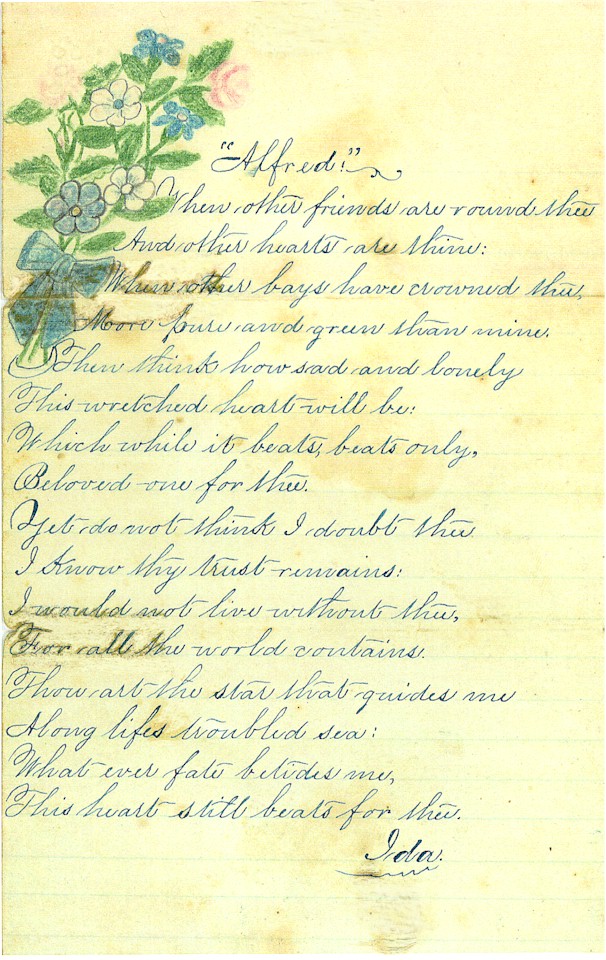 "Alfred!"
When other friends are round thee
And other hearts are thine:
When other bays have crowned thee,
More pure and green than mine.
Then think how sad and lonely
This wretched heart will be:
Which while it beats, beats only,
Beloved one for thee.
Yet do not think I doubt thee
I Know thy trust remains:
I would not live without thee,
For all the world contains.
Thou art the star that guides me
Along lifes troubled sea:
What ever fate betides me,
This heart still beats for thee.
Ida.